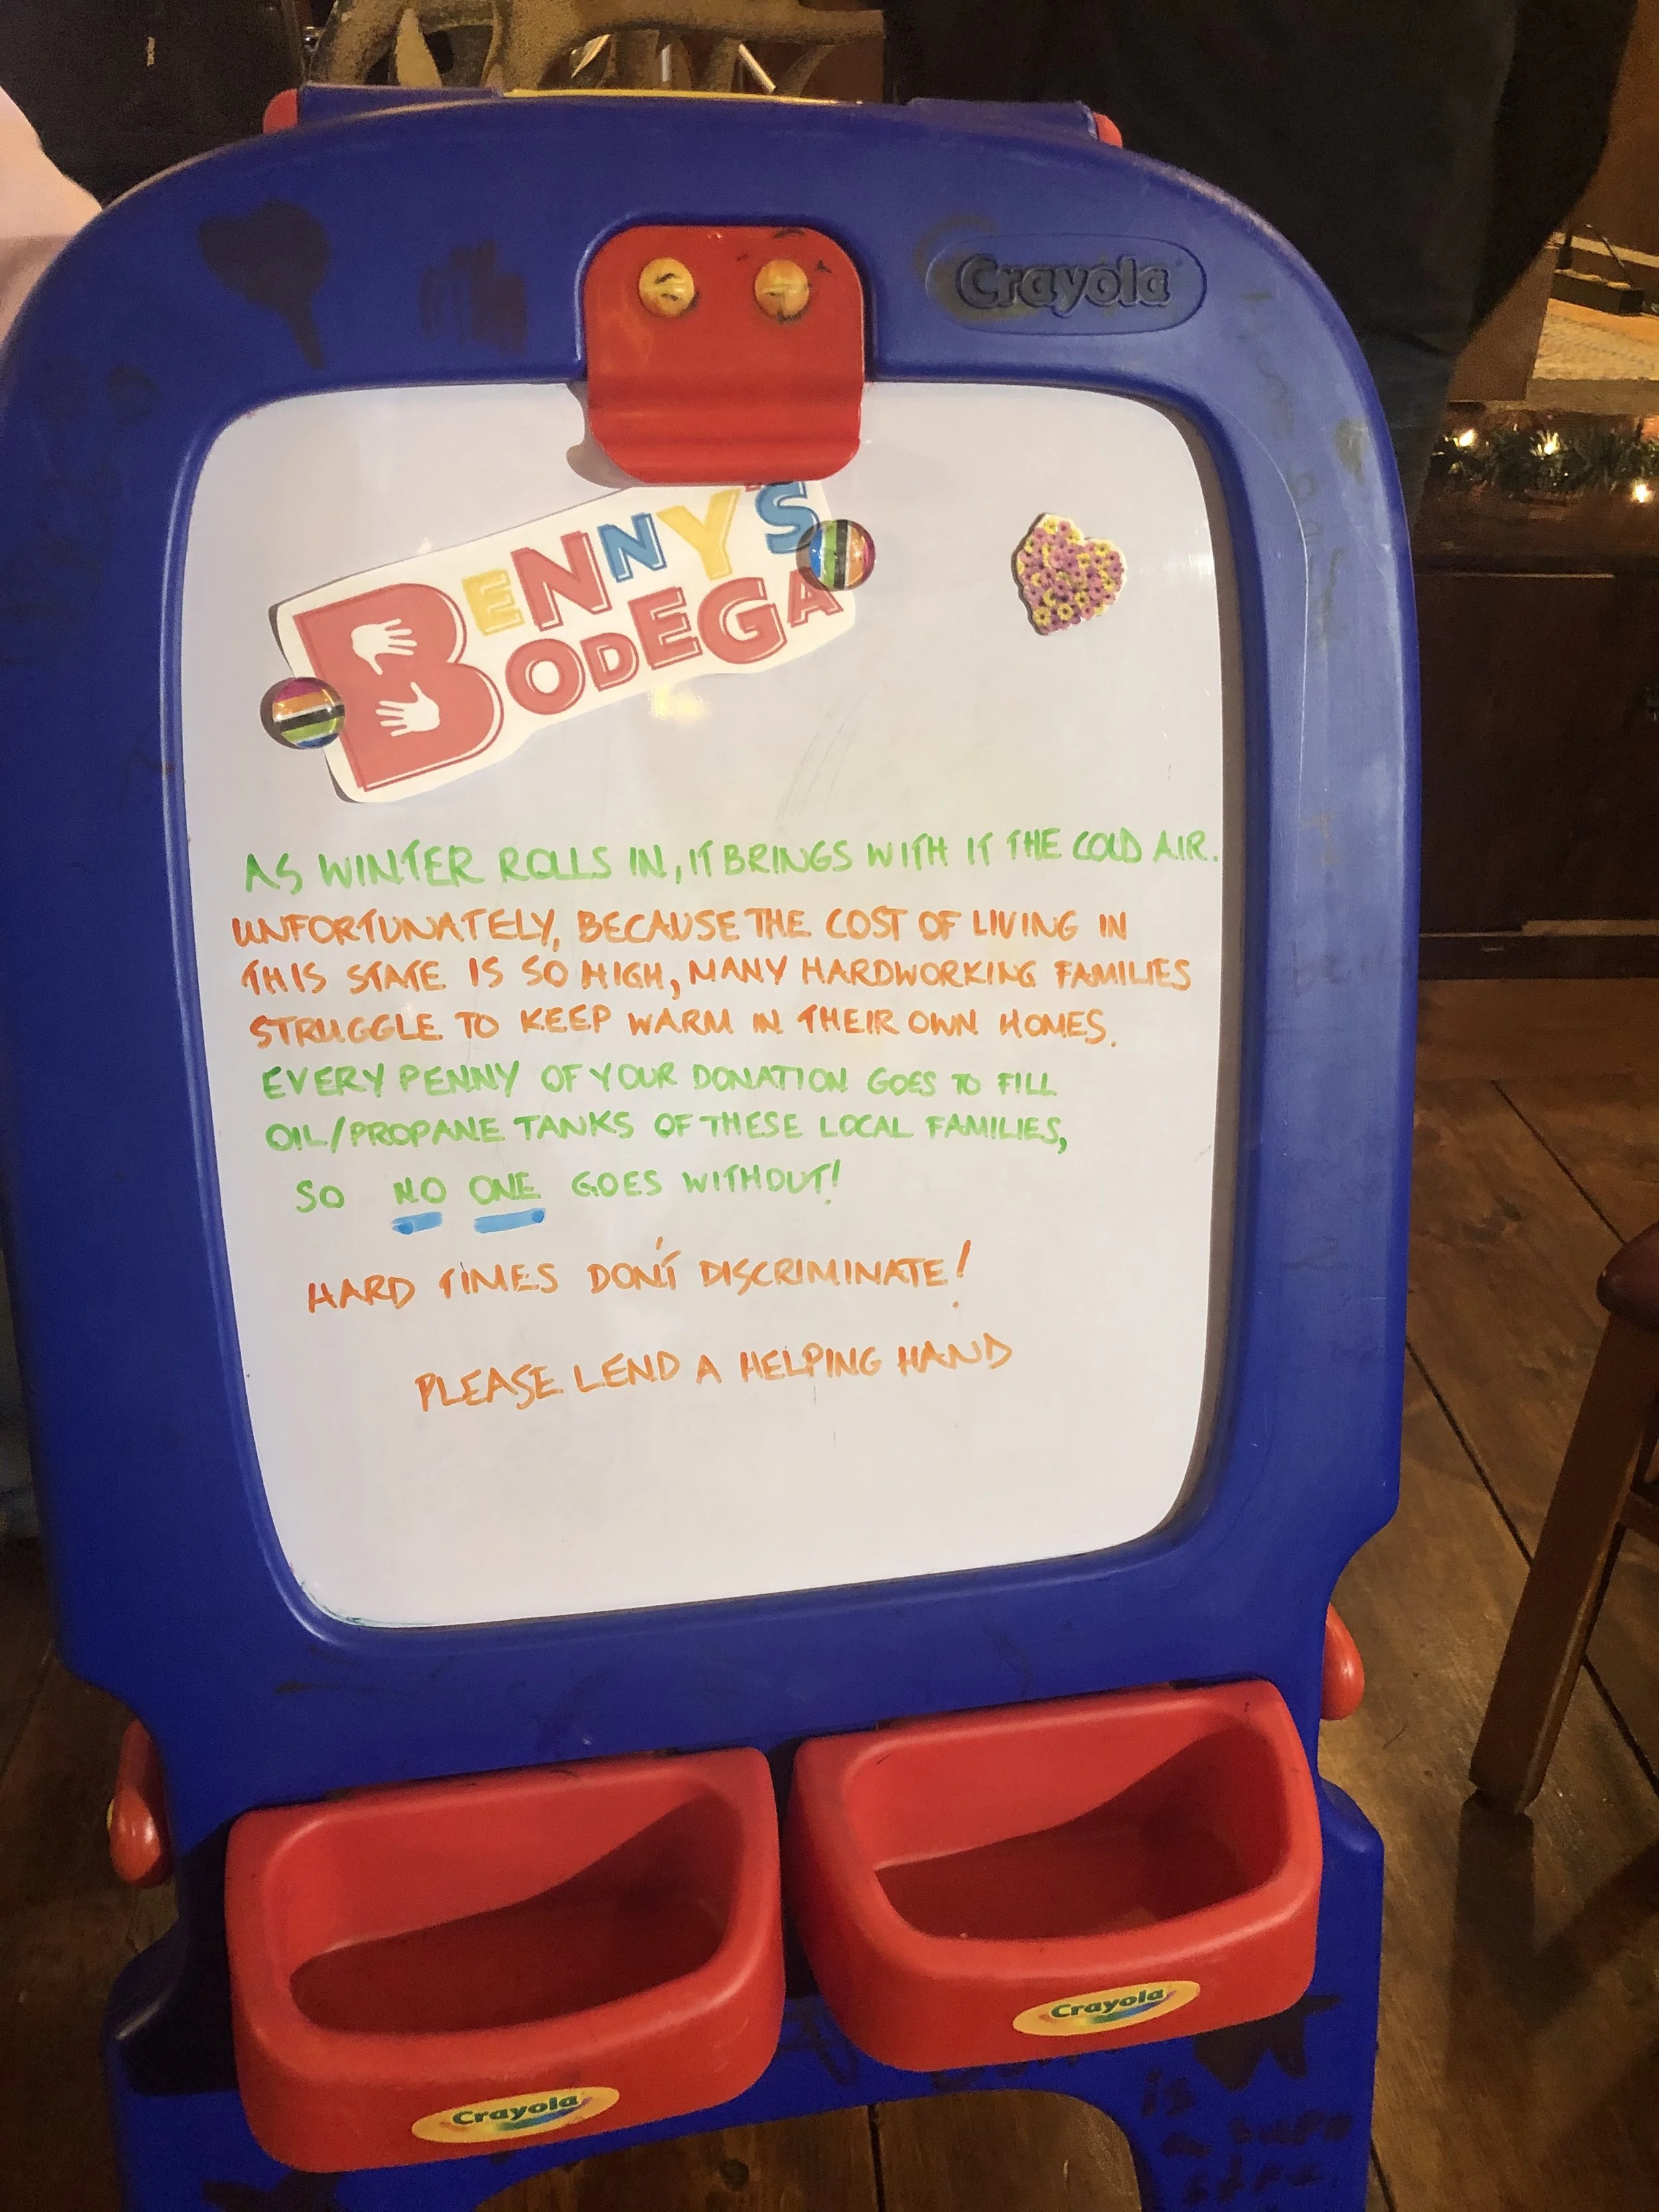 Crayola
BENNY'S
BODEGA
AS WINTER ROLLS IN, IT BRINGS WITH IT THE COLD AIR.
UNFORTUNATELY, BECAUSE THE COST OF LIVING IN
THIS STATE IS SO HIGH, MANY HARDWORKING FAMILIES
STRUGGLE TO KEEP WARM IN THEIR OWN HOMES.
EVERY PENNY OF YOUR DONATION GOES TO FILL
OIL/PROPANE TANKS OF THESE LOCAL FAMILIES,
SO NO ONE GOES WITHOUT!
HARD TIMES DON'T DISCRIMINATE!
PLEASE LEND A HELPING HAND
Crayola
Crayola
is
a